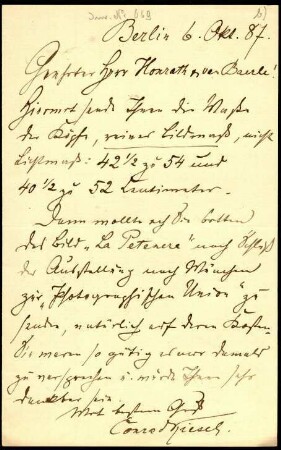 Berlin 6. Okt. 87.
Geehrter Herr Honrath & van Baerle!
Hiermit sende Ihnen die Maße
der Köpfe, reiner Bildmaß, nicht
Lichtmaß: 42 1/2 zu 54 und
40 1/2 zu 52 Centimeter.
Dann wollte ich Sie bitten
das Bild „La Petenera" nach Schluß
der Ausstellung nach München
zur „Photographischen Union" zu
senden, natürlich auf deren Kosten
Sie waren so gütig es mir damals
zu versprechen u. würde Ihnen sehr
dankbar sein.
Mit bestem Gruß
Conrad Kiesel.